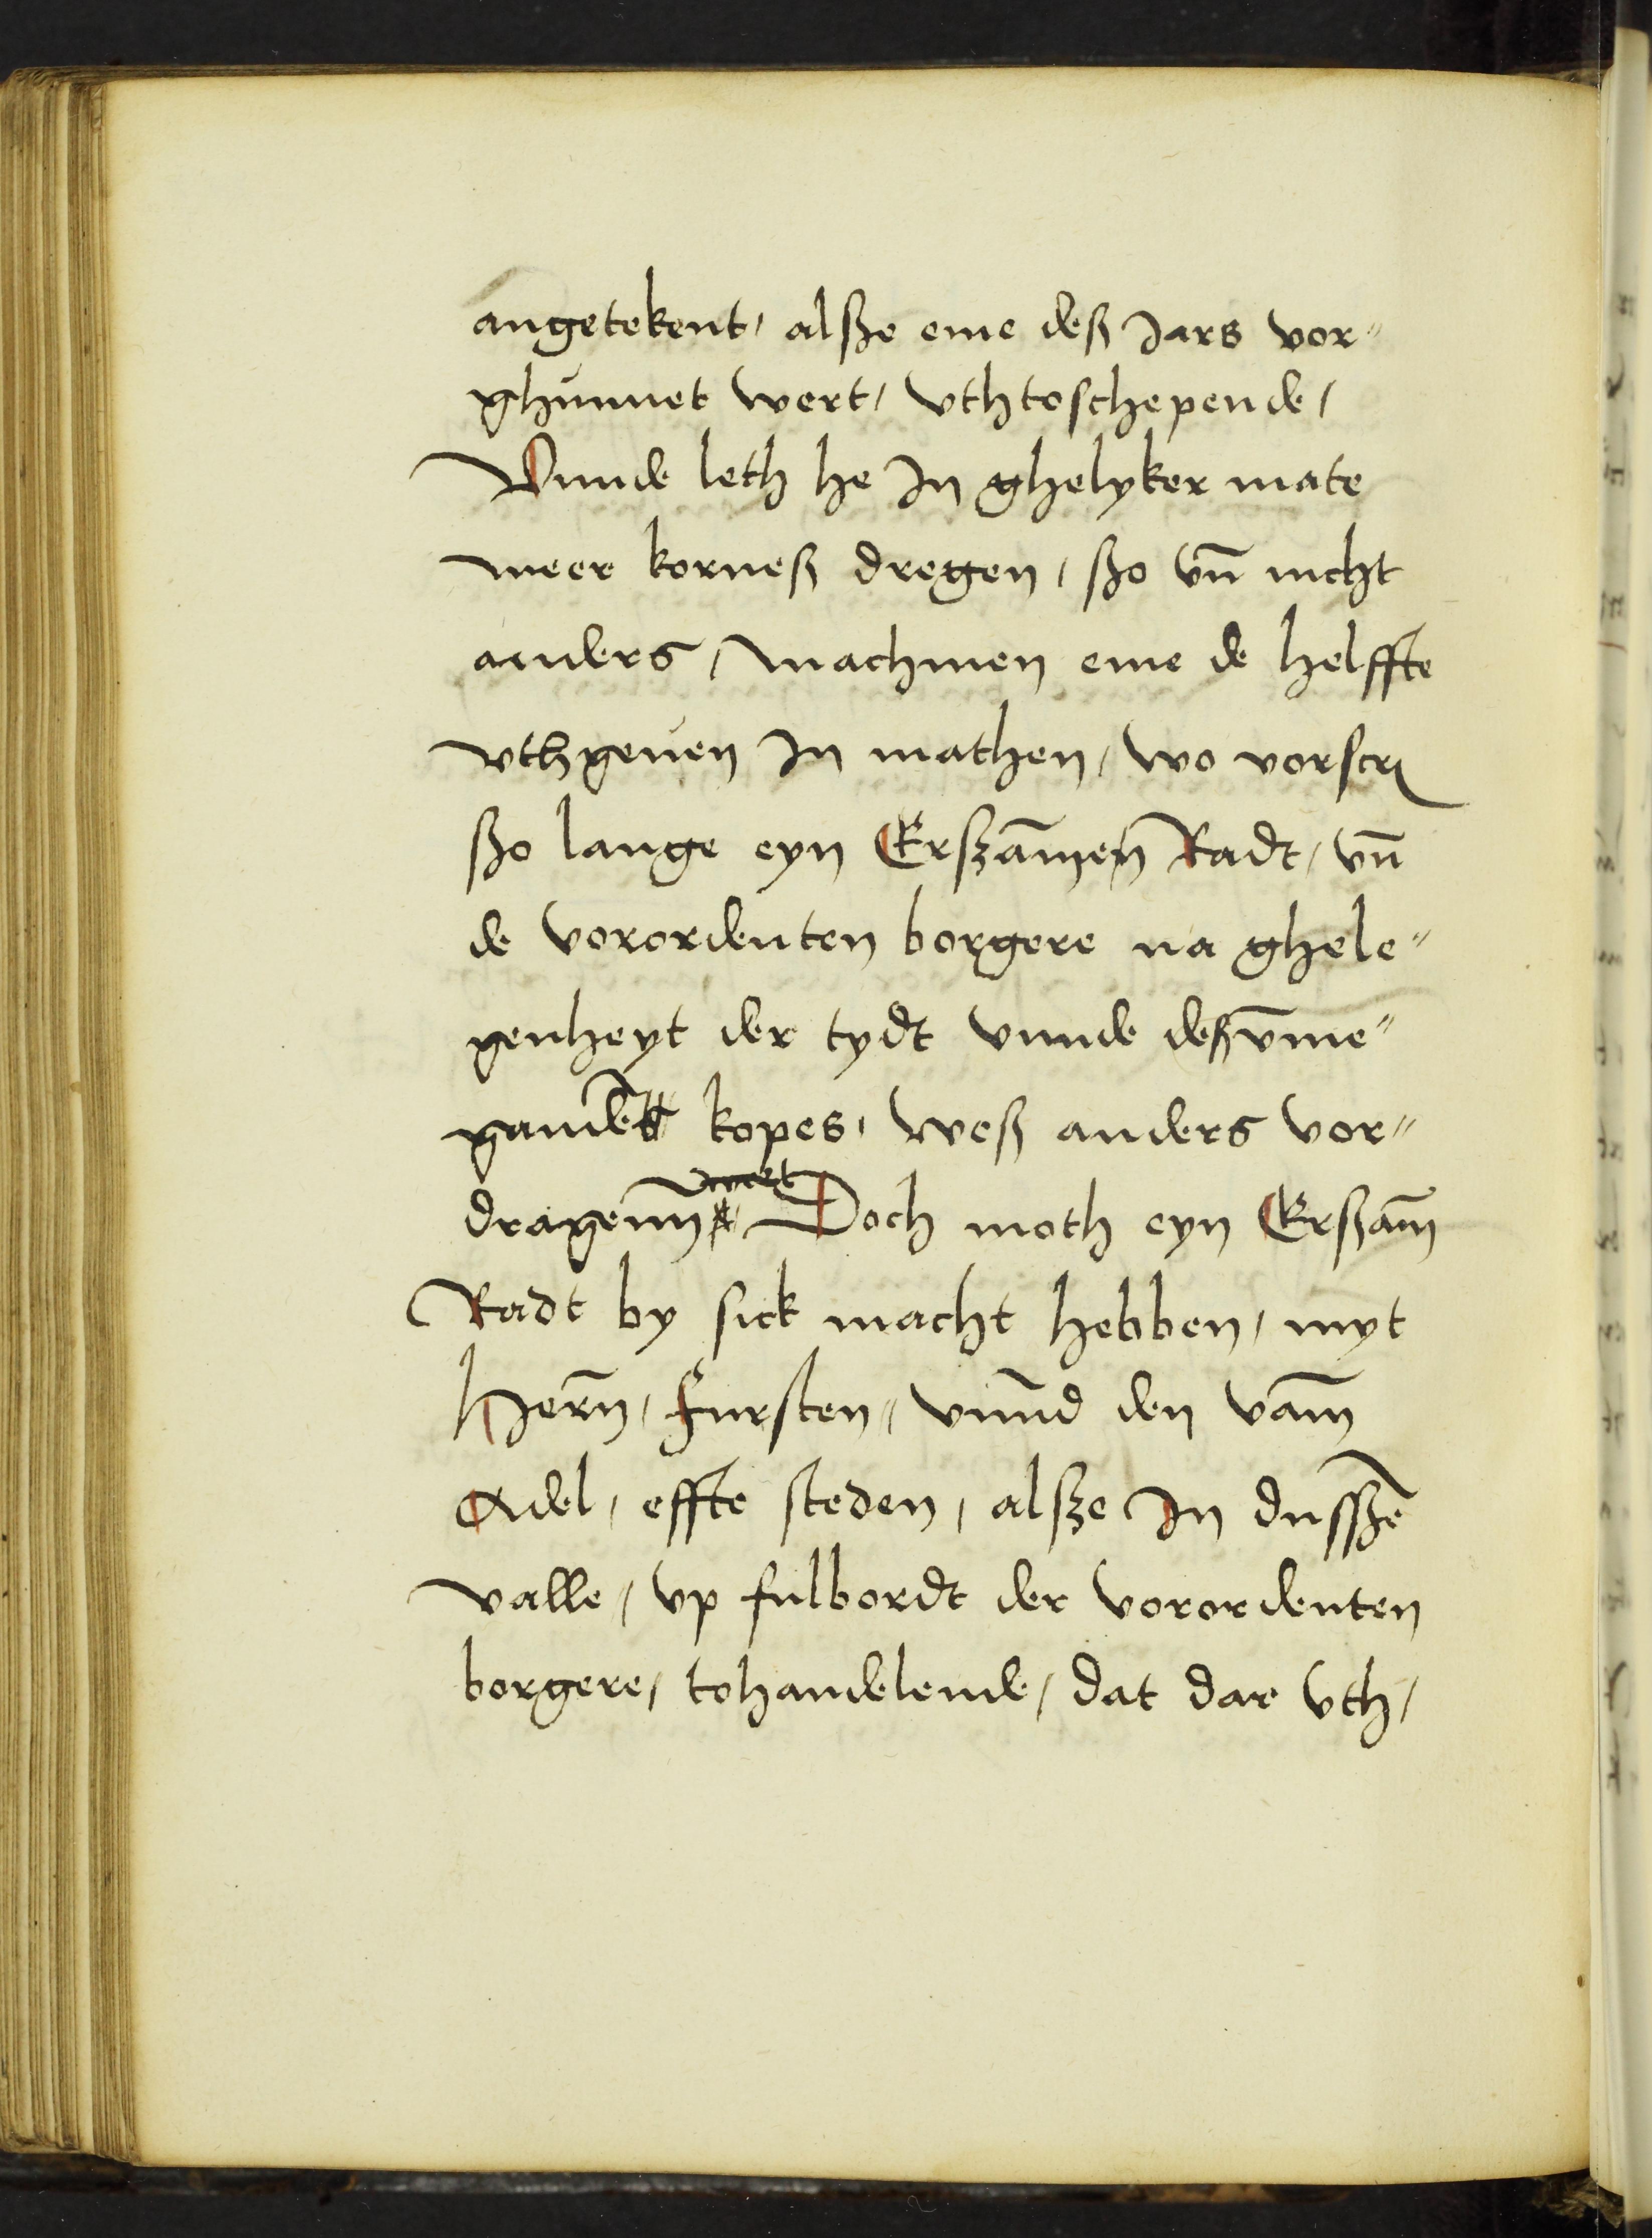 angetekent, alsße eme deß Jars vor=
ghunnet wert, vthtoschepende,
Vnnde leth he In ghelyker mate
meer korneß dregen, ßo vn̄ nicht
anders, machmen eme de helffte
vthgeuen In mathen, wo vorscr
ßo lange eyn Ersßāmen Radt, vn̄
de vorordenten borgere na ghele=
genheyt der tydt vnnde desßv̄me=
gandē kopes, weß anders vor=
wert
dragenn, Doch moth eyn Erßām
Radt by sick macht hebben, myt
Hern̄, Fursten, vnnd den vam̄
Adel, effte steden, alsße In dussßē
valle, vp fulbordt der vorordenten
borgere, tohandelende, dat dar vth,